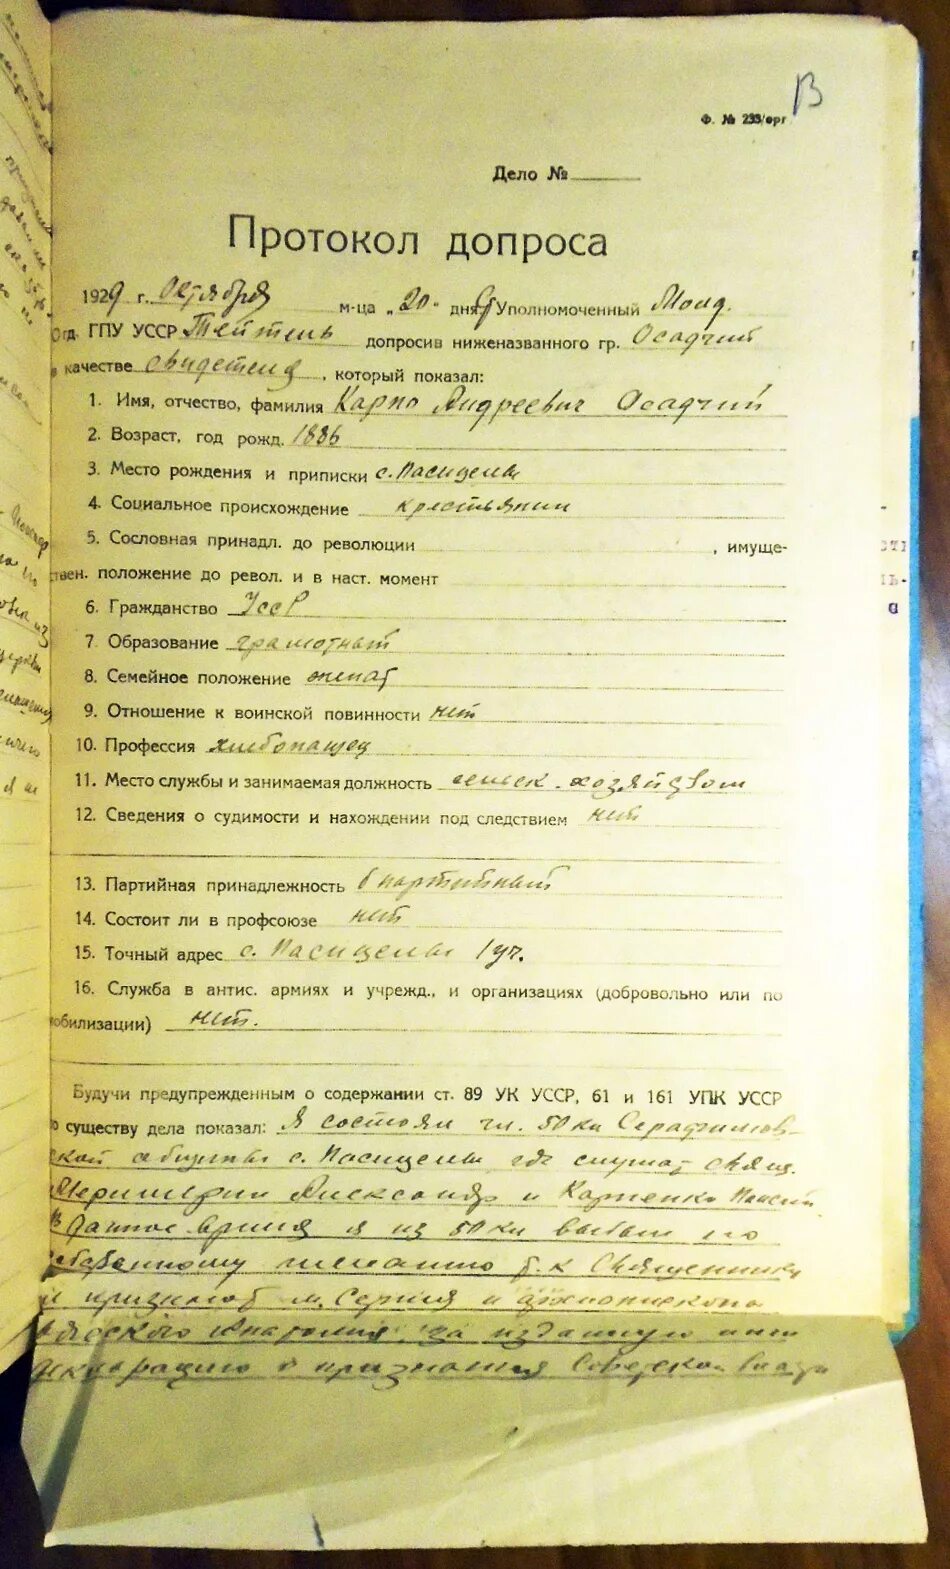 В
Ф. № 233/орг
Дело №
Протокол допроса
1929 г. Октября м-ца „20" дня Уполномоченный Молд.
Отд. ГПУ УССР Тейтель допросив ниженазванного гр. Осадчий
в качестве свидетеля, который показал:
1. Имя, отчество, фамилия Карпо Андреевич Осадчий
2. Возраст, год рожд. 1886
3. Место рождения и приписки с. Пасицелы
4. Социальное происхождение крестьянин
5. Сословная принадл. до революции , имуще-
ствен. положение до револ. и в наст. момент
6. Гражданство УССР
7. Образование грамотный
8. Семейное положение женат
9. Отношение к воинской повинности нет
10. Профессия хлебопашец
11. Место службы и занимаемая должность сельск. хозяйством
12. Сведения о судимости и нахождении под следствием нет
13. Партийная принадлежность б партийный
14. Состоит ли в профсоюзе нет
15. Точный адрес с. Пасицелы 1 уч.
16. Служба в антис. армиях и учрежд., и организациях (добровольно или по
мобилизации) нет.
Будучи предупрежденным о содержании ст. 89 УК УССР, 61 и 161 УПК УССР
по существу дела показал: Я состоял чл. 50ки Серафимов-
ской общины с. Пасицелы где служат свящ.
Александр и Карпенко
В данное время я из 50ки выбыл по
собственному желанию т. к священники
и признают м. Сергия и архиепископа
Одесского Анатолия, за изданную ими
декларацию о признания Советской власти